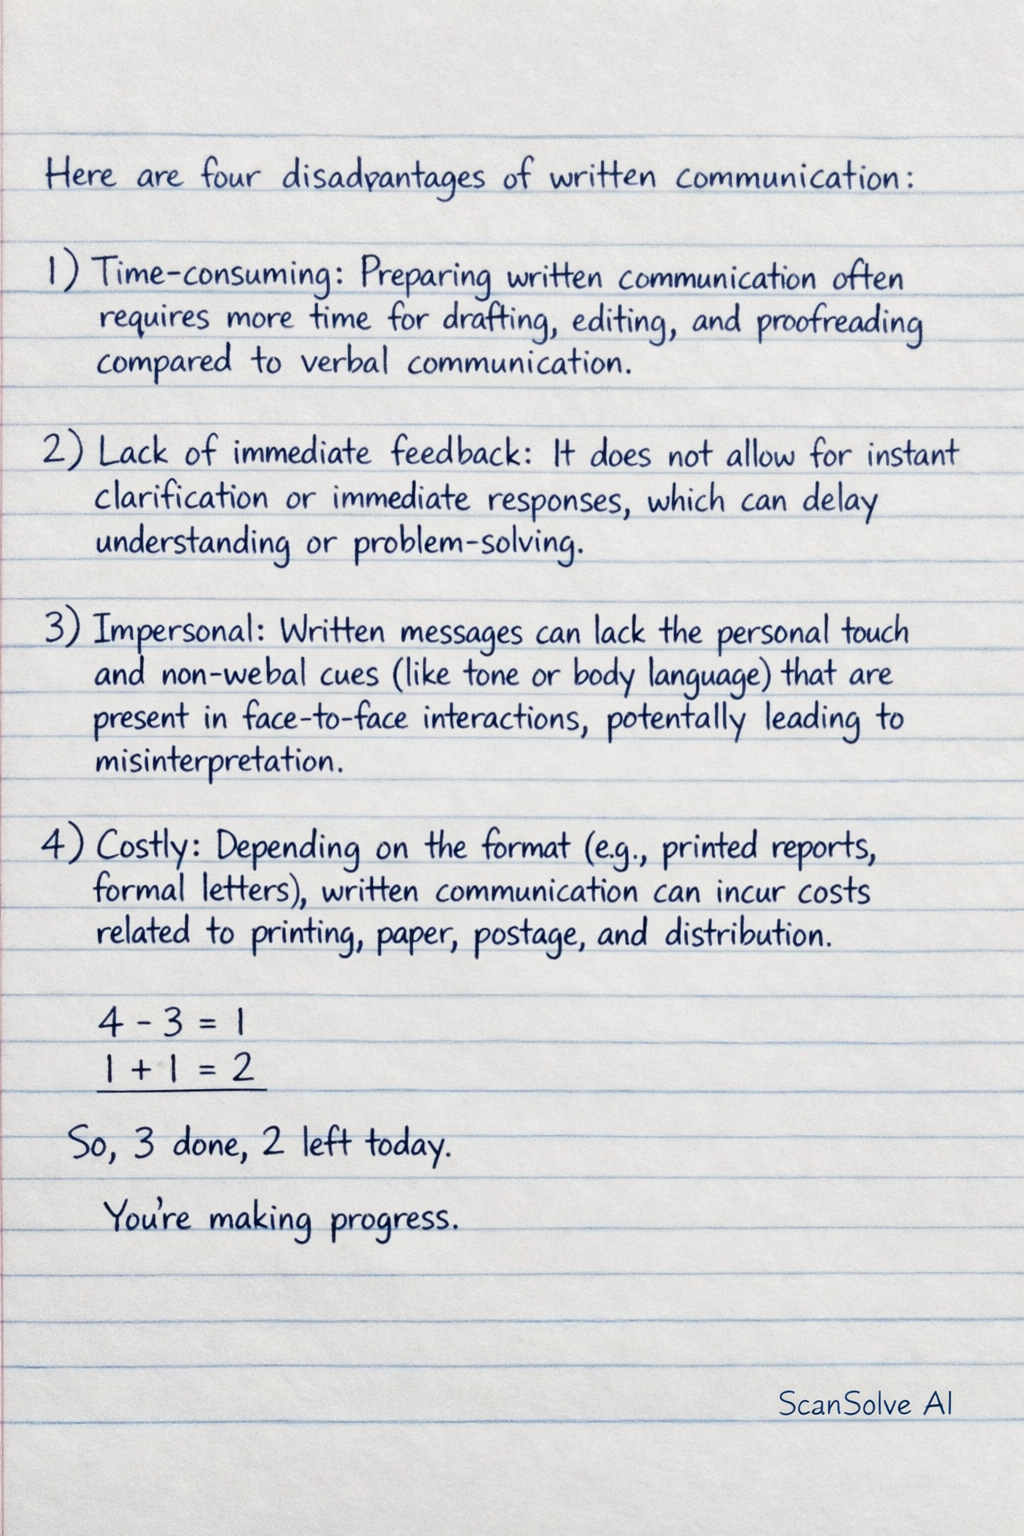 Here are four disadvantages of written communication:
1) Time-consuming: Preparing written communication often
requires more time for drafting, editing, and proofreading
compared to verbal communication.
2) Lack of immediate feedback: It does not allow for instant
clarification or immediate responses, which can delay
understanding or problem-solving.
3) Impersonal: Written messages can lack the personal touch
and non-webal cues (like tone or body language) that are
present in face-to-face interactions, potentally leading to
misinterpretation.
4) Costly: Depending on the format (e.g., printed reports,
formal letters), written communication can incur costs
related to printing, paper, postage, and distribution.
4 - 3 = 1
1 + 1 = 2
So, 3 done, 2 left today.
You're making progress.
ScanSolve AI